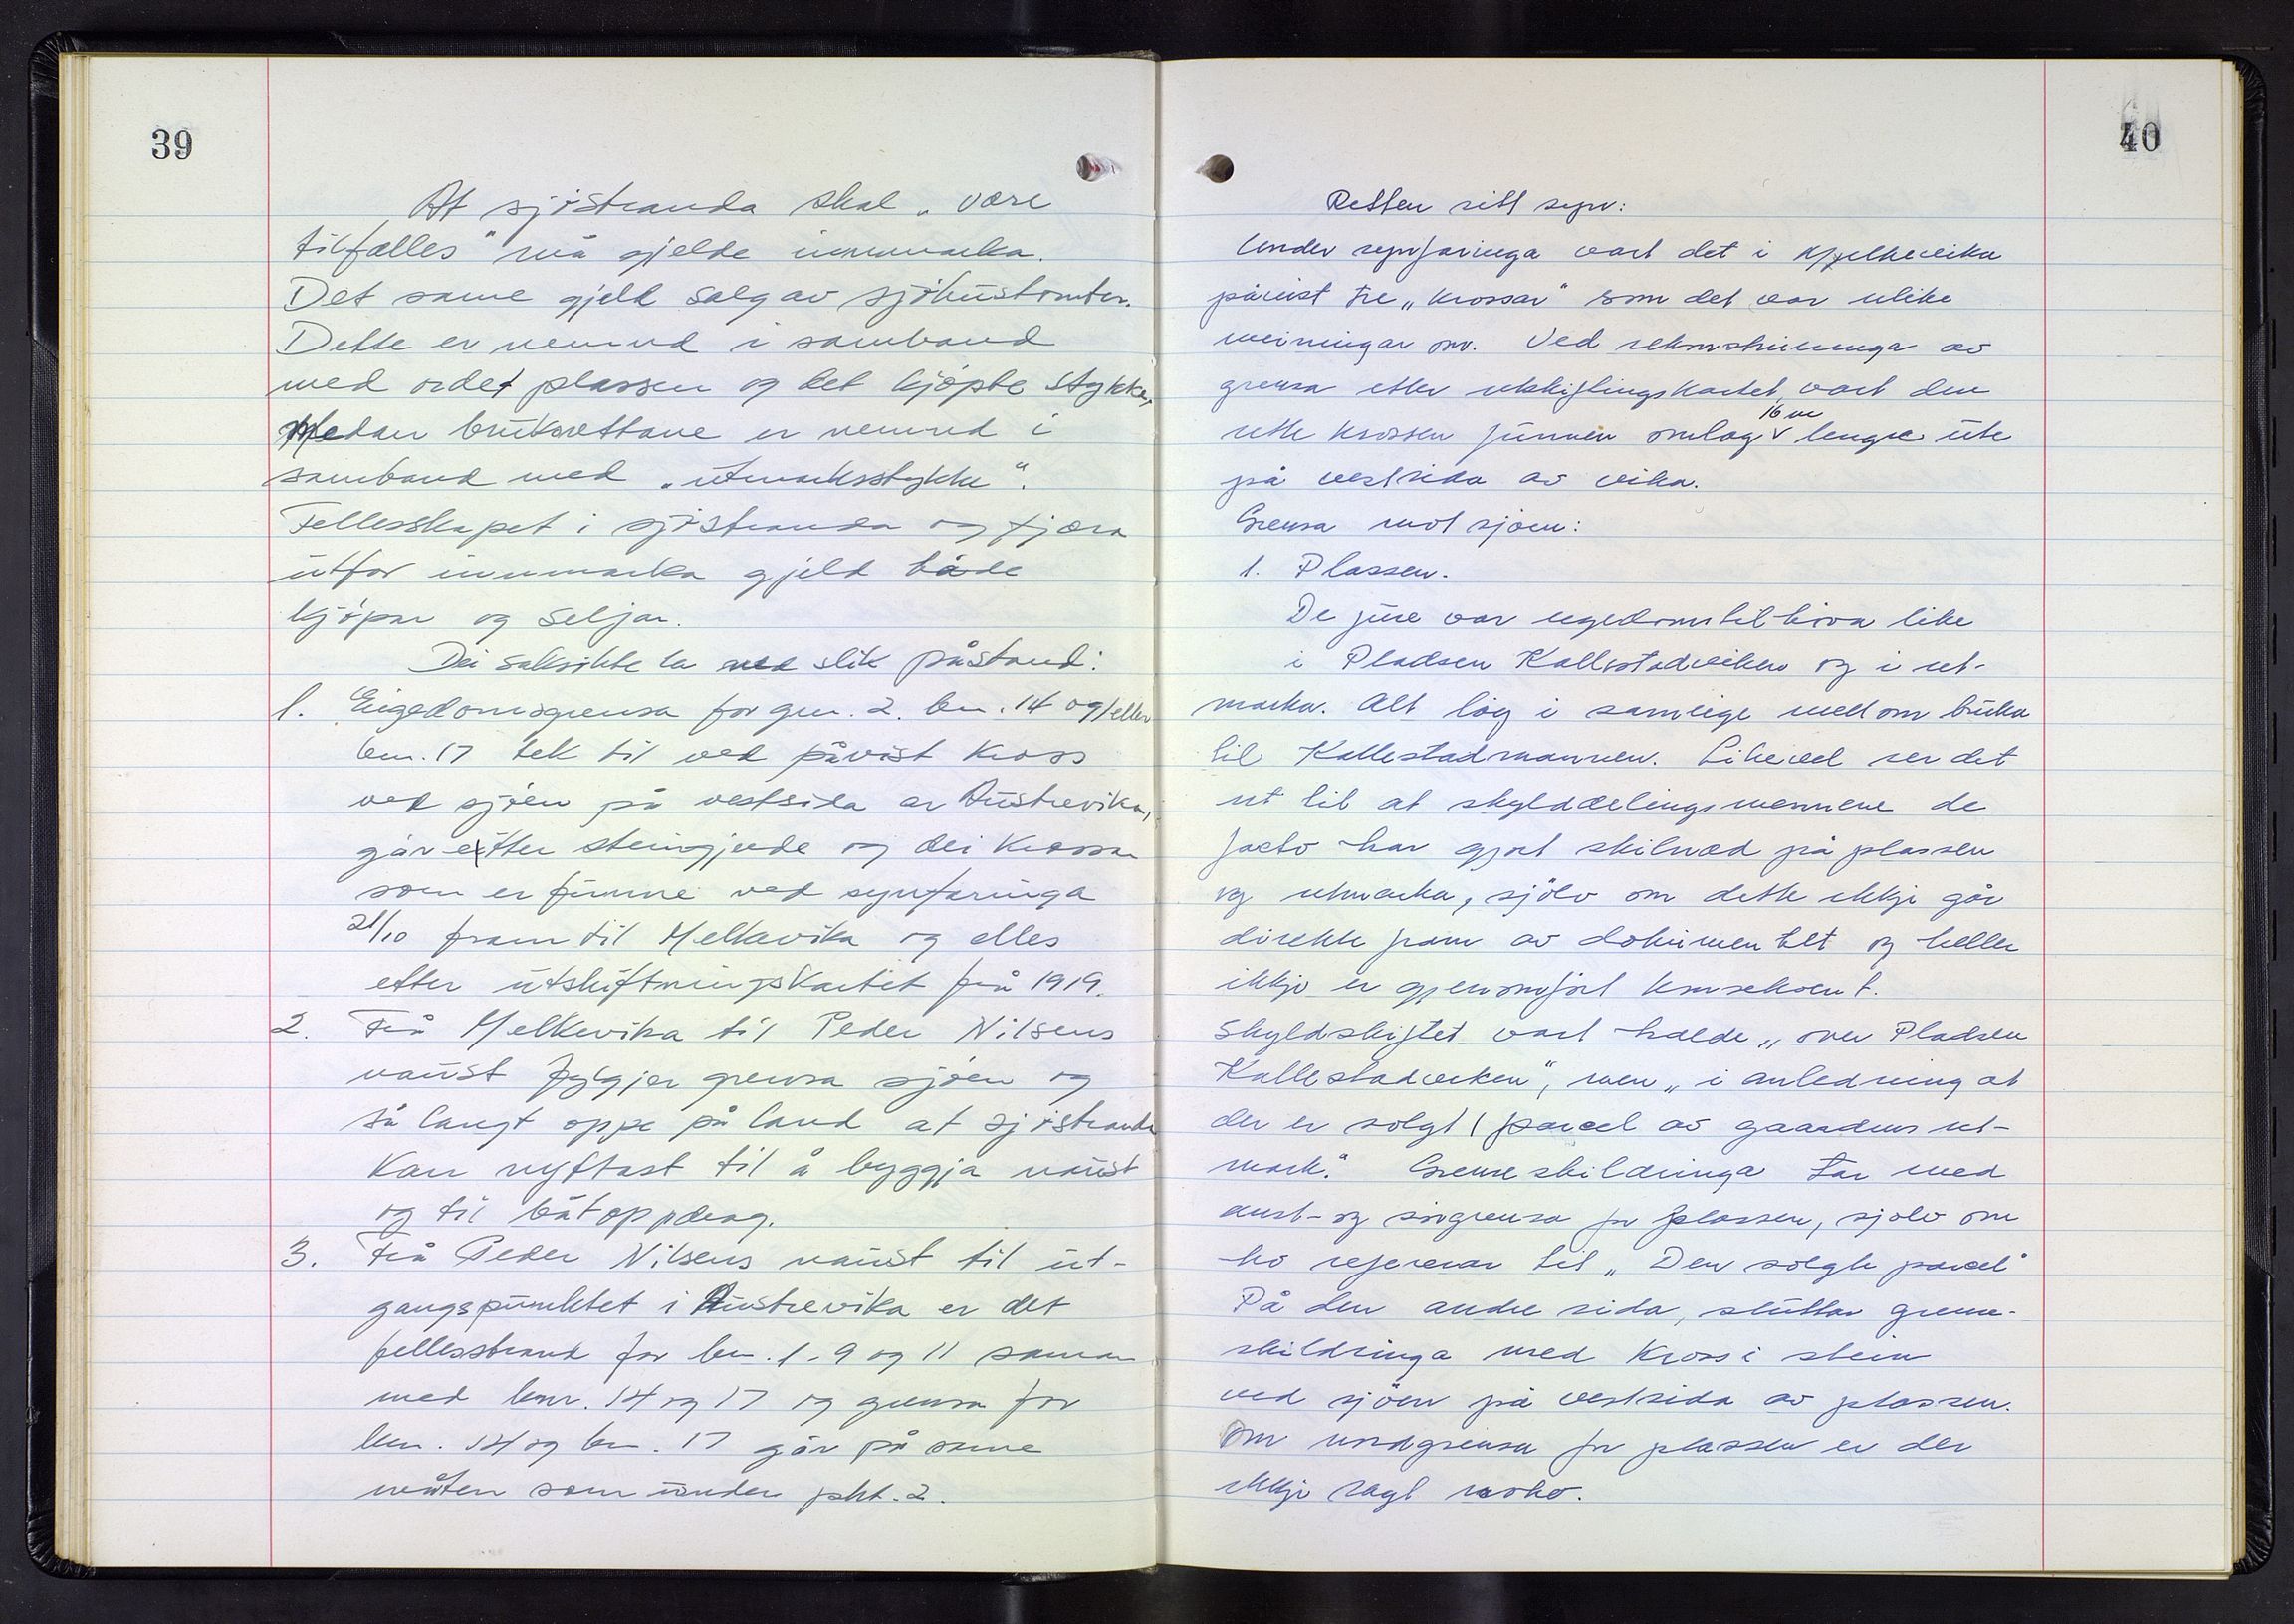 39
At sjöstranda skal „være
tilfælles" må gjelde innmarka.
Det same gjeld salg av sjöhustomter.
Dette er nemnd i samband
med ordet plassen og det kjöpte stykke,
Medan bruksrettane er nemnd i
samband med „utmarksstykke".
Fellesskapet i sjöstranda og fjæra
utfor innmarka gjeld både
kjöpar og seljar.
Dei saksökte la ned slik påstand:
1. Eigedomsgrensa for gnr. 2. bnr. 14 og/eller
bnr. 17 tek til ved påvist kross
ved sjöen på vestsida av Austrevika,
går etter steingjerde og dei krossar
som er funne ved synfaringa
21/10 fram til Melkevika og elles
etter utskiftningskartet frå 1919.
2. Frå Melkevika til Peder Nilsens
naust fylgjer grensa sjöen og
så langt oppe på land at sjöstranda
kan nyttast til å byggja naust
og til båtoppdrag.
3. Frå Peder Nilsens naust til ut-
gangspunktet i Austrevika er det
fellesstrand for bnr. 1-9 og 11 saman
med bnr. 14 og 17 og grensa for
bnr. 14 og bnr. 17 går på same
måten som under pkt. 2.
40
Retten sitt syn:
Under synfaringa vart det i Mjelkevika
påvist tre „krossar" som det var ulike
meiningar om. Ved rekonstruering av
grensa etter utskiftingskartet vart den
rette krossen funnen omlag 16 m lengre ute
på vestsida av vika.
Grensa mot sjöen:
1. Plassen.
De jure var eigedomstilhöva like
i Pladsen Kallestadviken og i ut-
marka. Alt låg i sameige mellom bruka
til Kallestadmannen. Likevel ser det
ut til at skylddelingsmennene de
facto har gjort skilnad på plassen
og utmarka, sjölv om dette ikkje går
direkte fram av dokumentet og heller
ikkje er gjennomfört konsekvent.
Skyldskiftet vart halde „over Pladsen
Kallestadviken", men „i anledning at
der er solgt 1 parcel av gaardens ut-
mark." Grenseskildringa tar med
aust- og sörgrensa for plassen, sjölv om
ho refererar til „Den solgte parcel"
På den andre sida, sluttar grense-
skildringa med kross i stein
ved sjöen på vestsida av plassen.
Om nordgrensa for plassen er det
ikkje sagt noko.